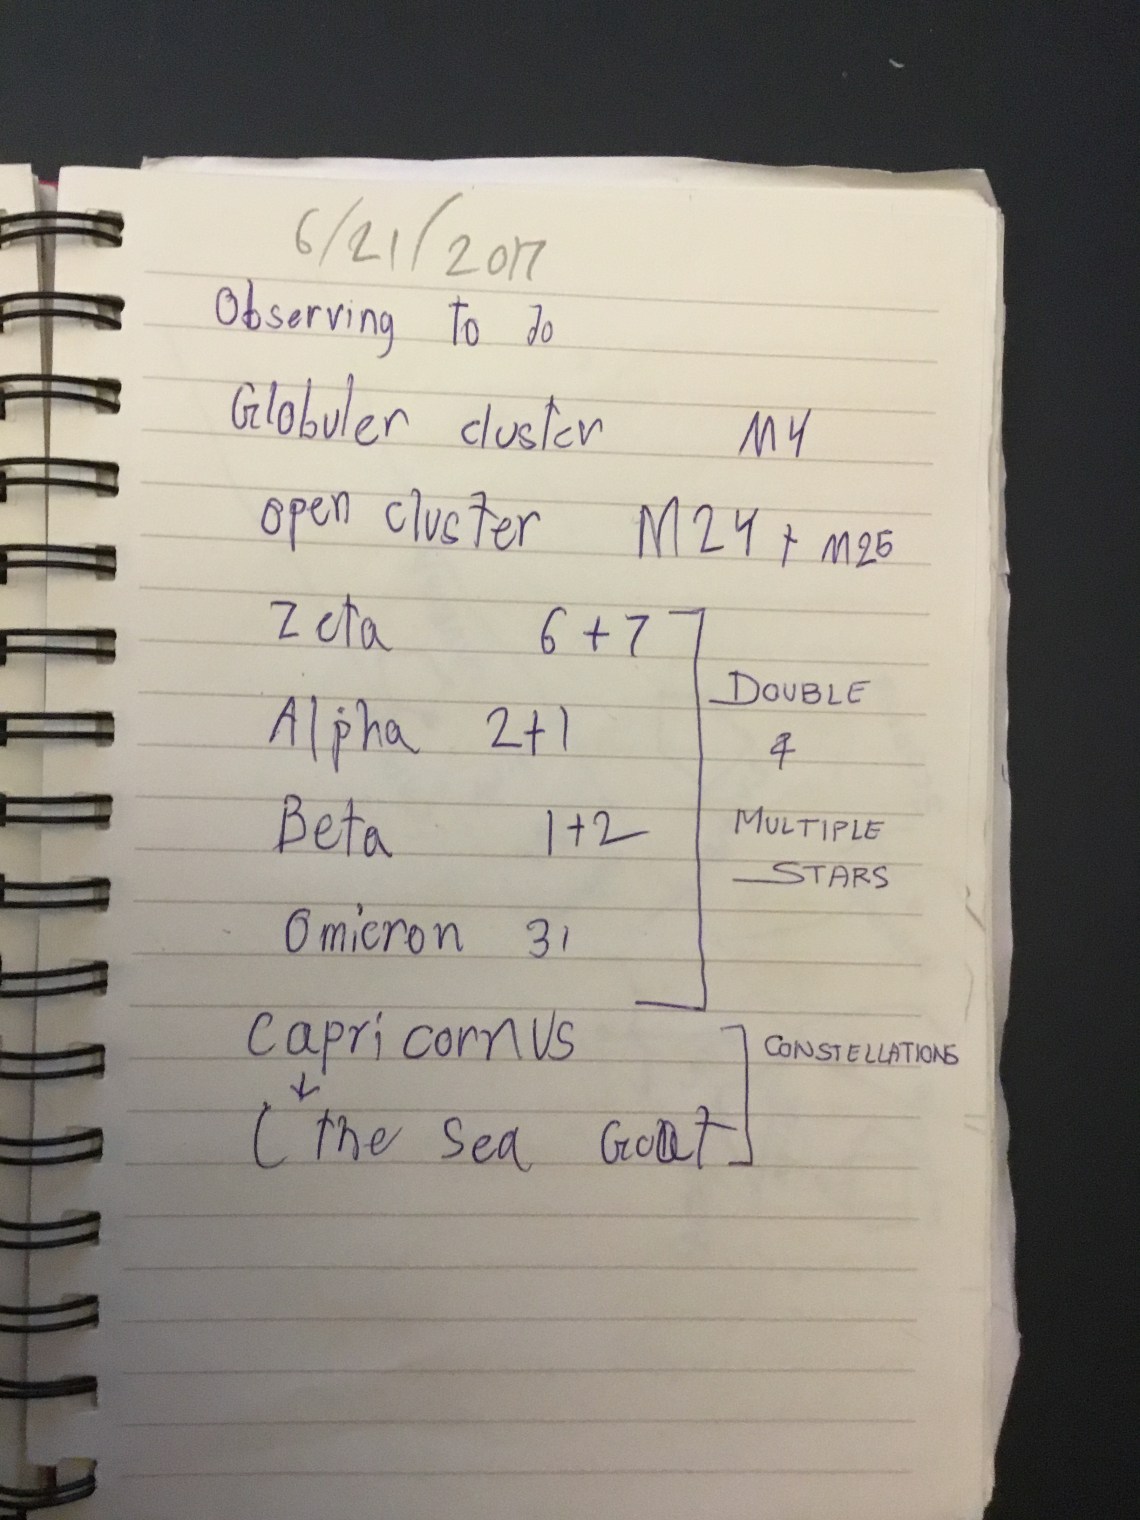 6/21/2017
Observing to do
Globuler cluster M4
open cluster M24 + M25
Zeta 6+7
DOUBLE
Alpha 2+1
&
Beta 1+2
MULTIPLE
STARS
Omicron 31
Capricornus
CONSTELLATIONS
↓
( the Sea Goat